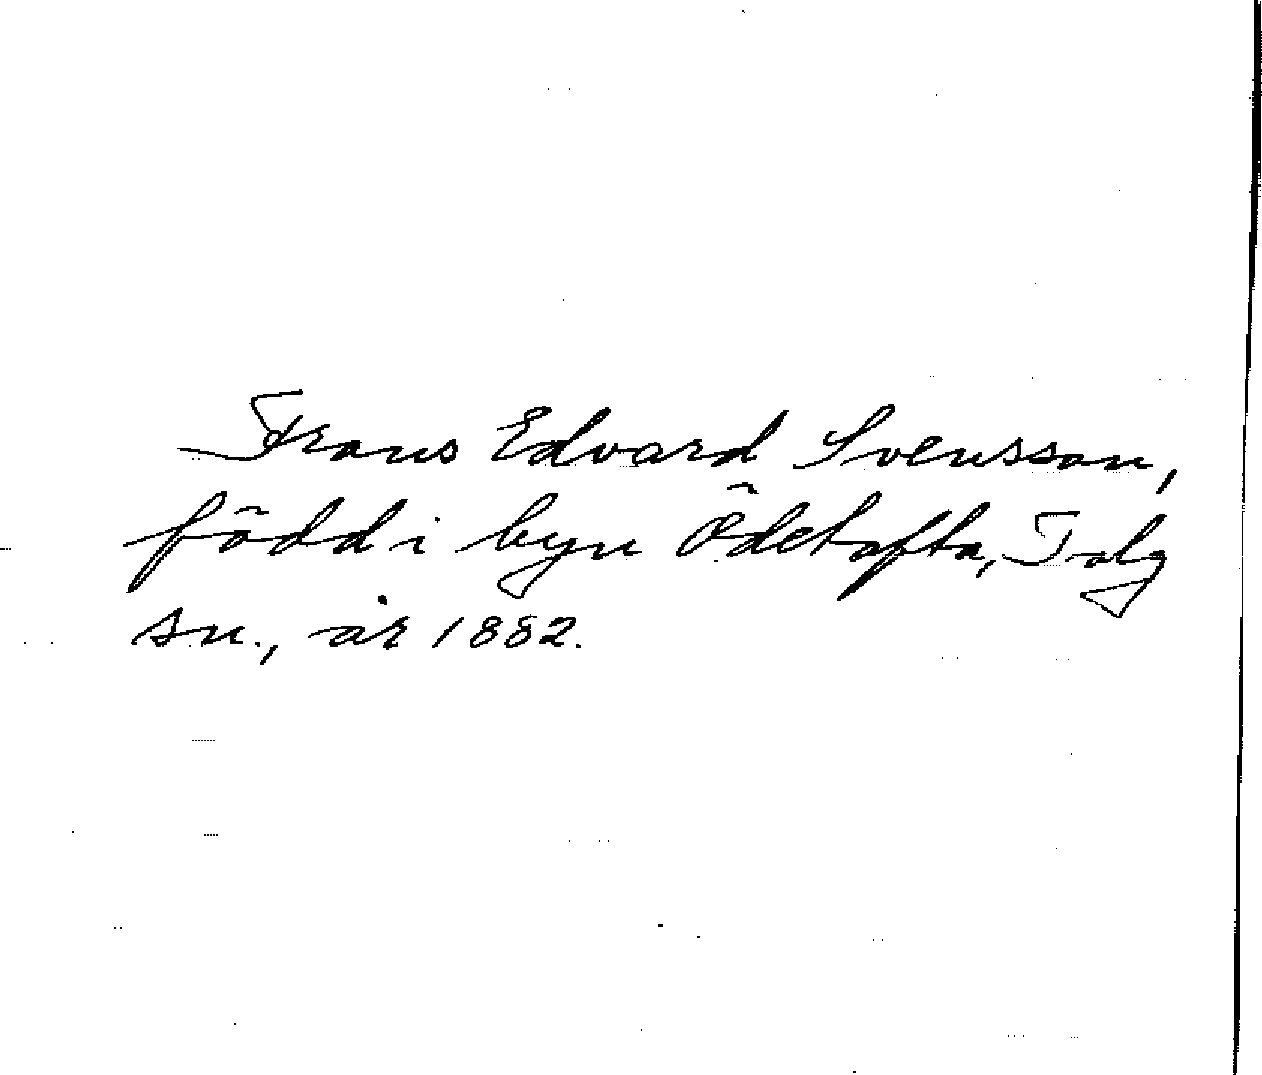 Frans Edvard Svensson,
född i byn Ödetofta, Tolg
sn., år 1882.